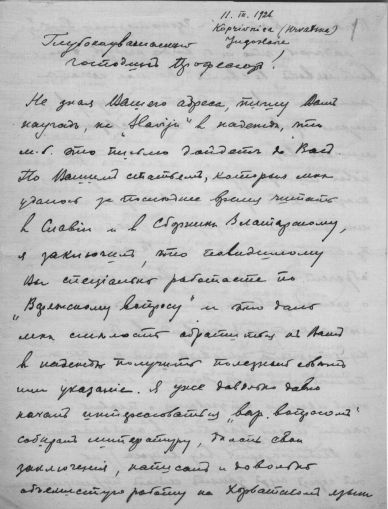 11. III. 1926
Koprivnica (Hrvatska)
Jugoslavie
Глубокоуважаемый
господинъ Профессоръ!
Не зная Вашего адреса, пишу Вамъ
наугадъ, на „Slaviju“ въ надеждѣ, что
м.б. это письмо дойдетъ до Васъ.
По Вашимъ статьямъ, которыя мнѣ
удалось за последнее время читать
въ Славіи и въ Сборникѣ Златарскому,
я заключилъ, что повидимому
Вы спеціально работаете по
„Варяжскому вопросу“ и это даетъ
мнѣ смѣлость обратиться къ Вамъ
въ надеждѣ получить полезный совѣтъ
или указаніе. Я уже довольно давно
началъ интересоваться „вар. вопросомъ“
собиралъ литературу, дѣлать свои
заключенія, написалъ и довольно
объемистую работу на Хорватскомъ языкѣ